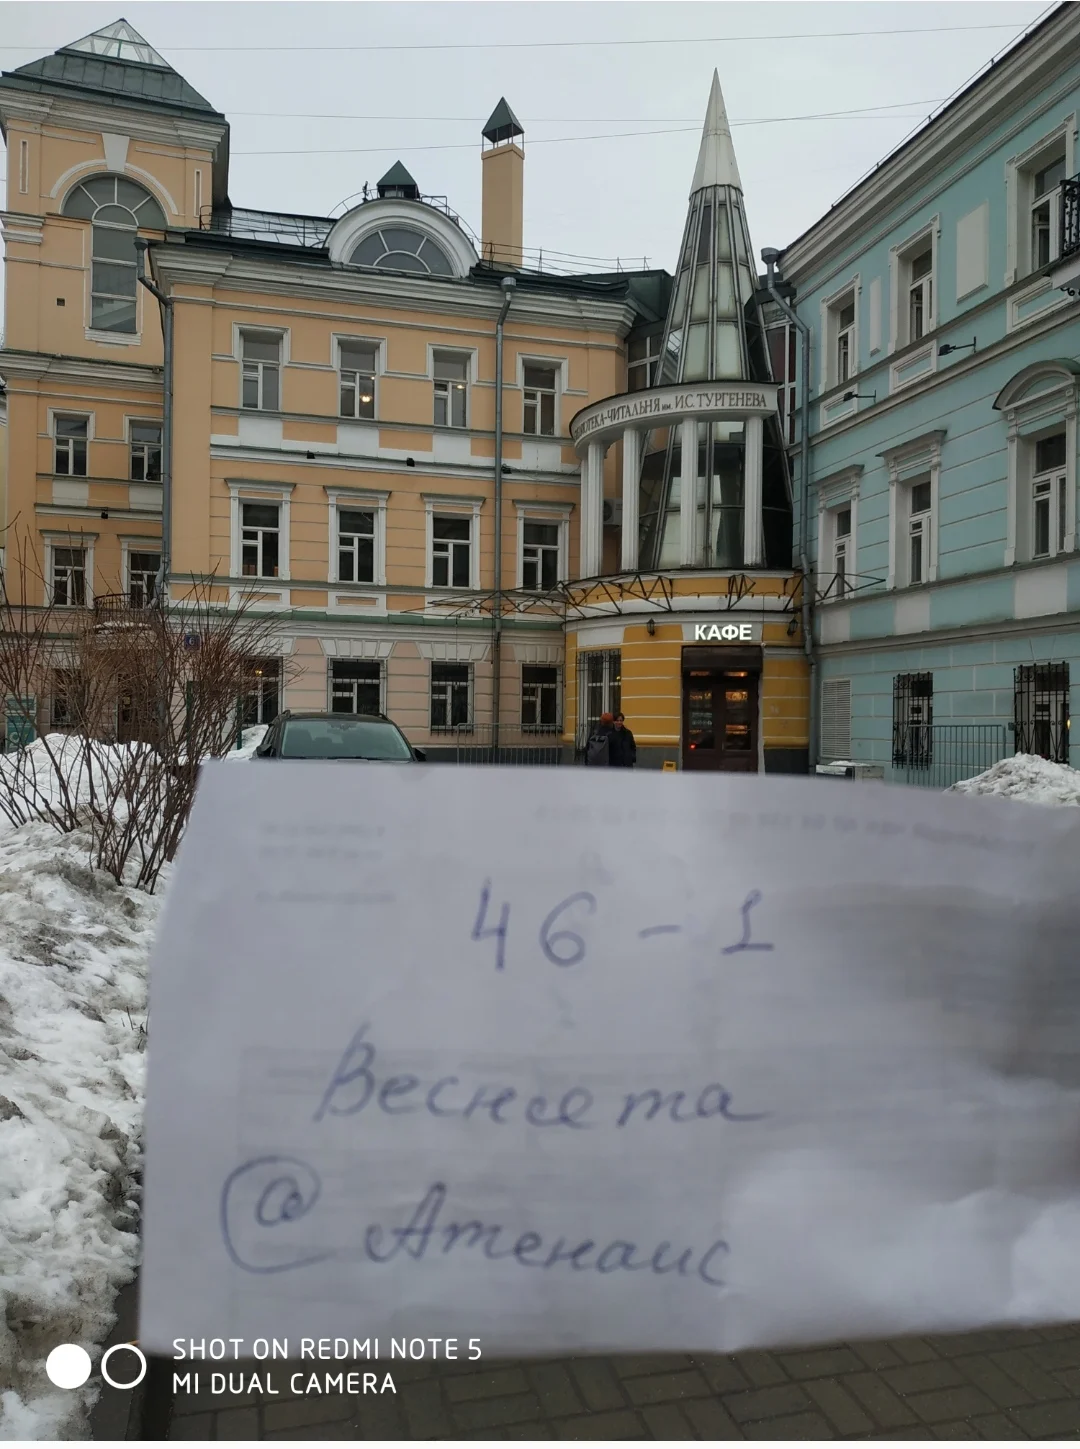 БИБЛИОТЕКА-ЧИТАЛЬНЯ им. И.С. ТУРГЕНЕВА
КАФЕ
6
46 - 1
Веснеета
@ Атенаис
SHOT ON REDMI NOTE 5
MI DUAL CAMERA